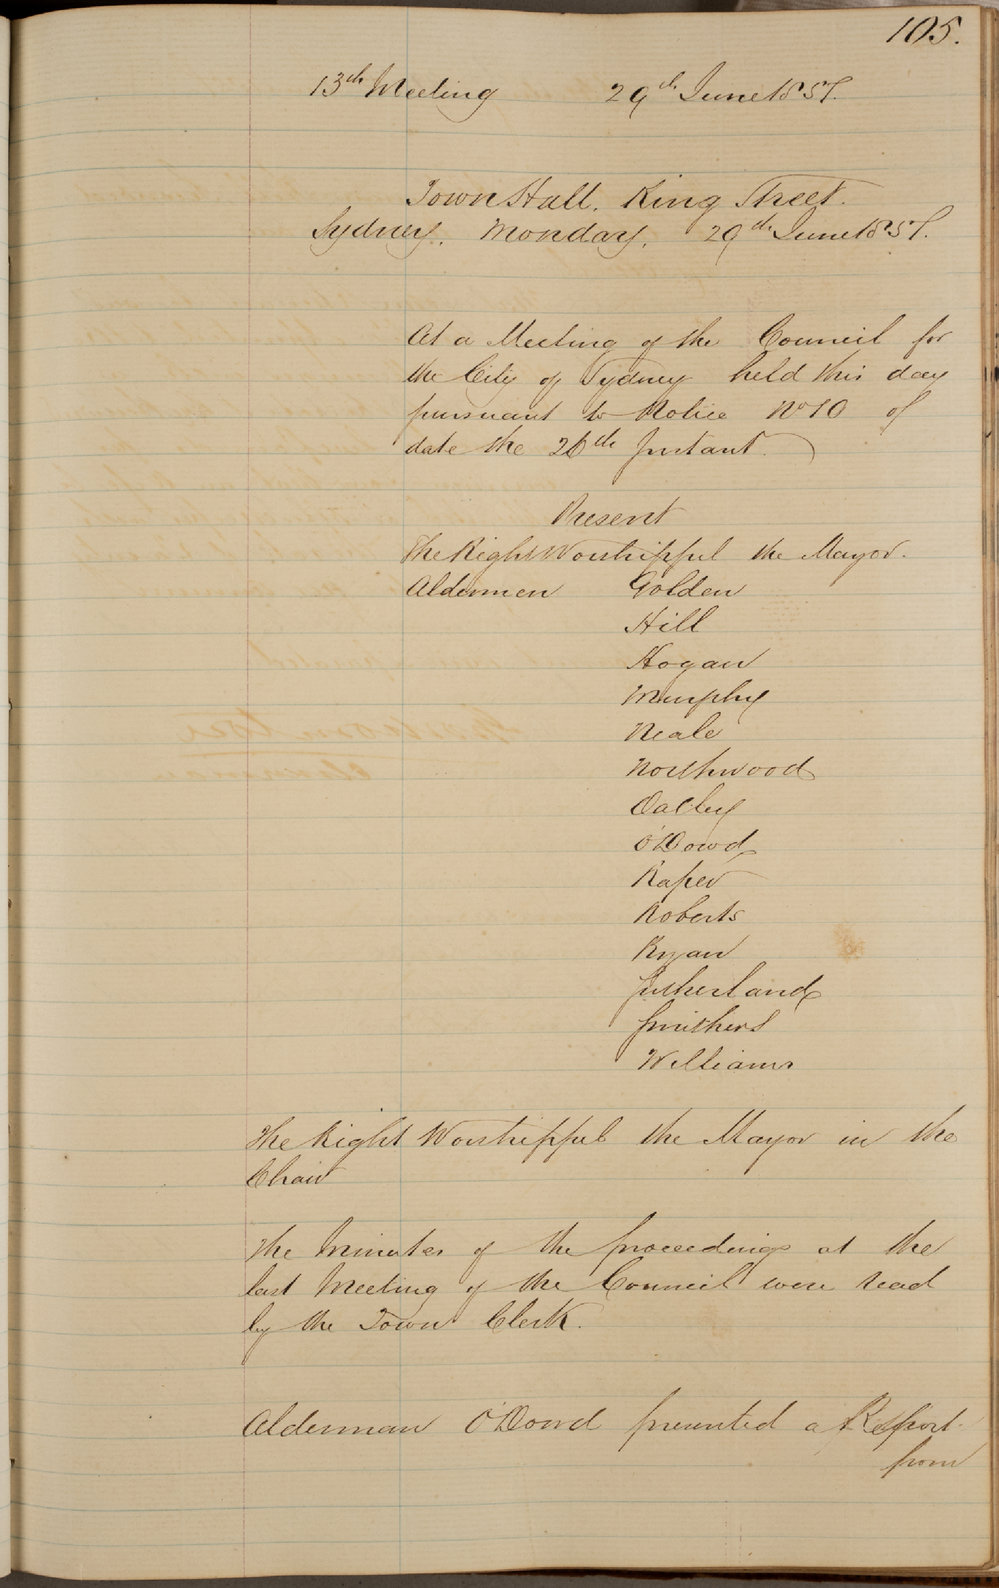 105.
13th Meeting 29th June 1857.
Town Hall, King Street.
Sydney, Monday, 29th June 1857.
At a Meeting of the Council for
the City of Sydney held this day
pursuant to Notice No 10 of
date the 26th Instant.
Present
The Right Worshipful the Mayor.
Aldermen Golden
Hill
Hogan
Murphy
Neale
Northwood
Oatley
O'Dowd
Raper
Roberts
Ryan
Sutherland
Smithers
Williams
The Right Worshipful the Mayor in the
Chair
The Minutes of the proceedings at the
last Meeting of the Council were read
by the Town Clerk.
Alderman O'Dowd presented a Report
from